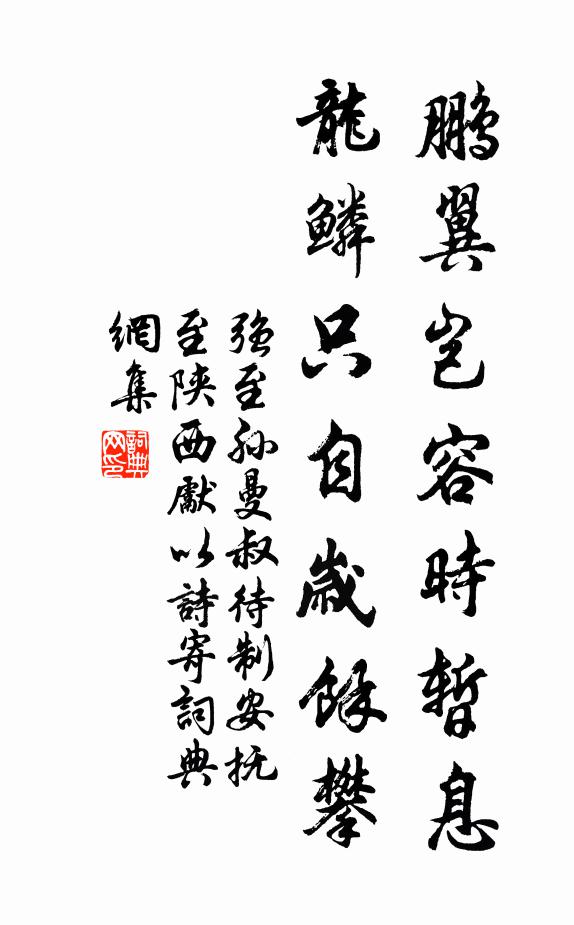 鵬翼豈容時暫息
龍鱗只自歲餘攀
強至孫曼叔待制安抚
至陝西獻以詩寄詞典
網集
詞典
网印